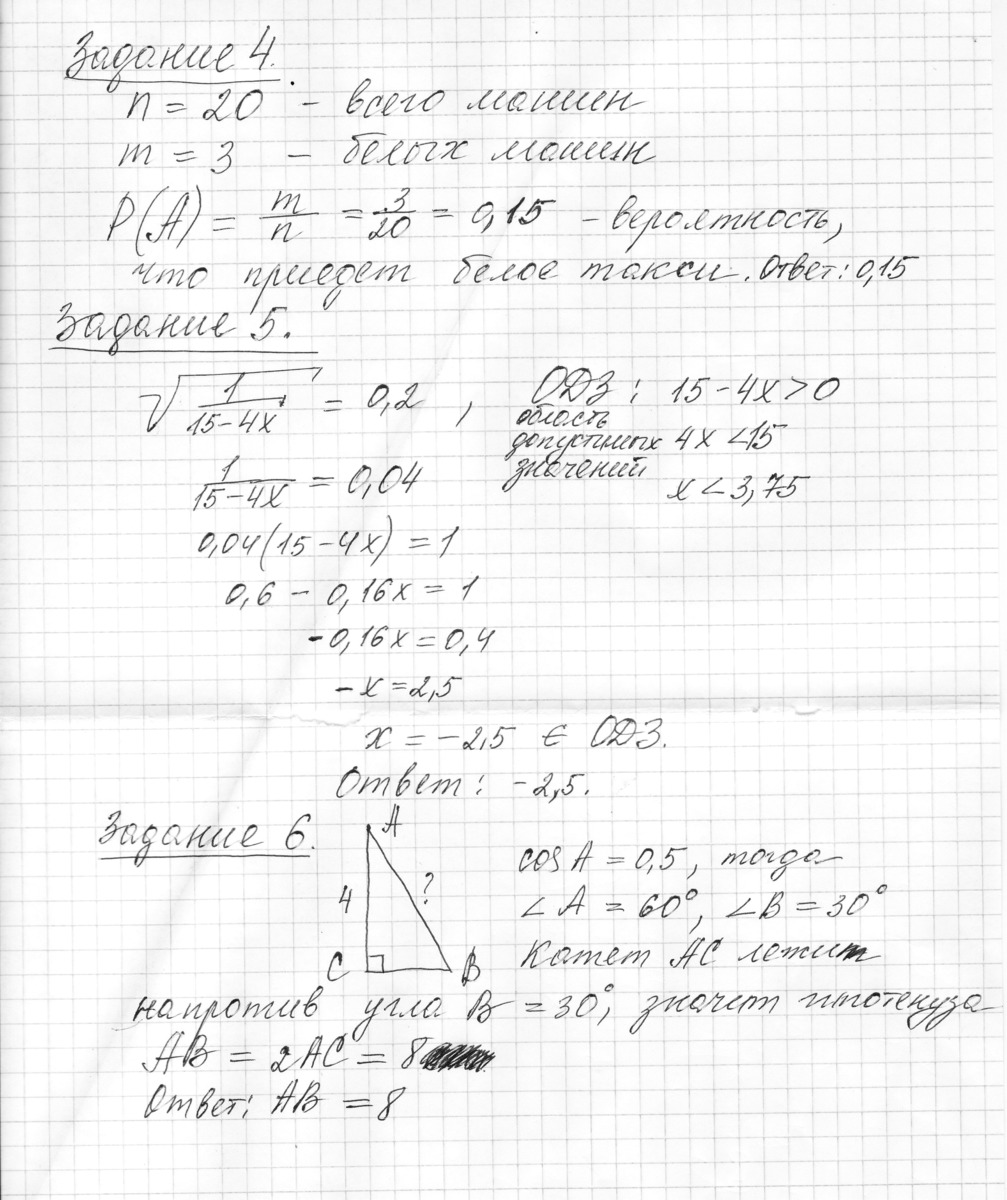 Задание 4.
n = 20 - всего машин
m = 3 - белых машин
P(A) = m/n = 3/20 = 0,15 - вероятность,
что приедет белое такси. Ответ: 0,15
Задание 5.
√(1/(15-4x)) = 0,2 , ОДЗ: 15-4x>0
область
допустимых 4x<15
значений
1/(15-4x) = 0,04 x<3,75
0,04(15-4x) = 1
0,6 - 0,16x = 1
-0,16x = 0,4
-x = 2,5
x = -2,5 ∈ ОДЗ.
Ответ: -2,5.
Задание 6.
A
4
?
C
B
cos A = 0,5, тогда
∠A = 60°, ∠B = 30°
Катет AC лежит
напротив угла B = 30°, значит гипотенуза
AB = 2AC = 8
Ответ: AB = 8